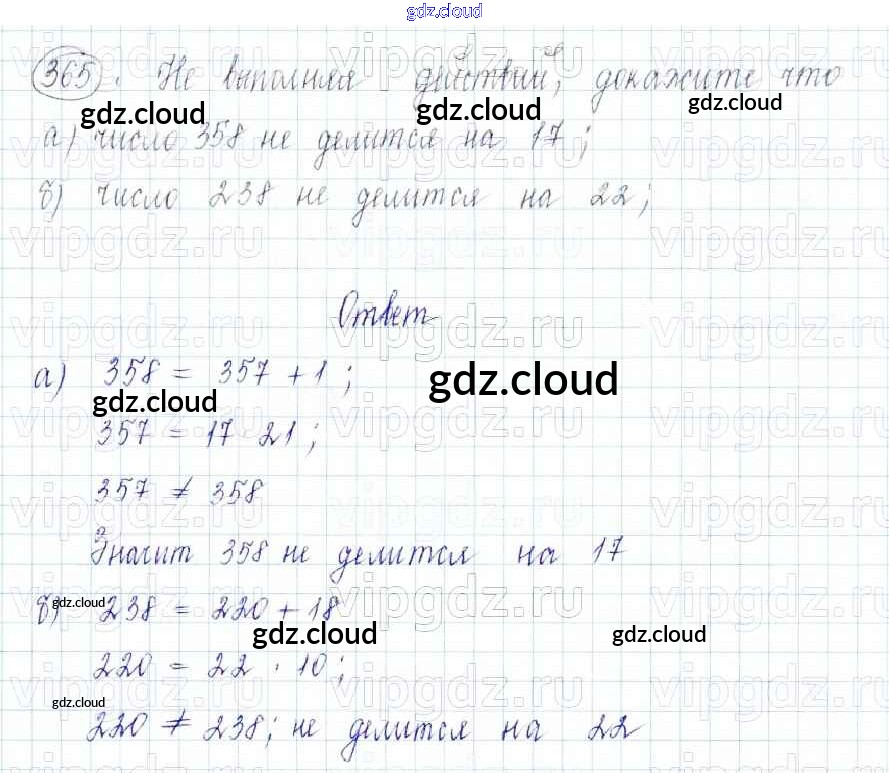 gdz.cloud
365. Не выполняя действий, докажите что
gdz.cloud gdz.cloud gdz.cloud
а) число 358 не делится на 17;
б) число 238 не делится на 22;
vipgdz.ru vipgdz.ru vipgdz.ru
Ответ
vipgdz.ru vipgdz.ru vipgdz.ru
а) 358 = 357 + 1;
gdz.cloud gdz.cloud
357 = 17 · 21;
357 ≠ 358
vipgdz.ru vipgdz.ru vipgdz.ru
Значит 358 не делится на 17
gdz.cloud
б) 238 = 220 + 18
gdz.cloud gdz.cloud
220 = 22 · 10;
gdz.cloud
220 ≠ 238; не делится на 22